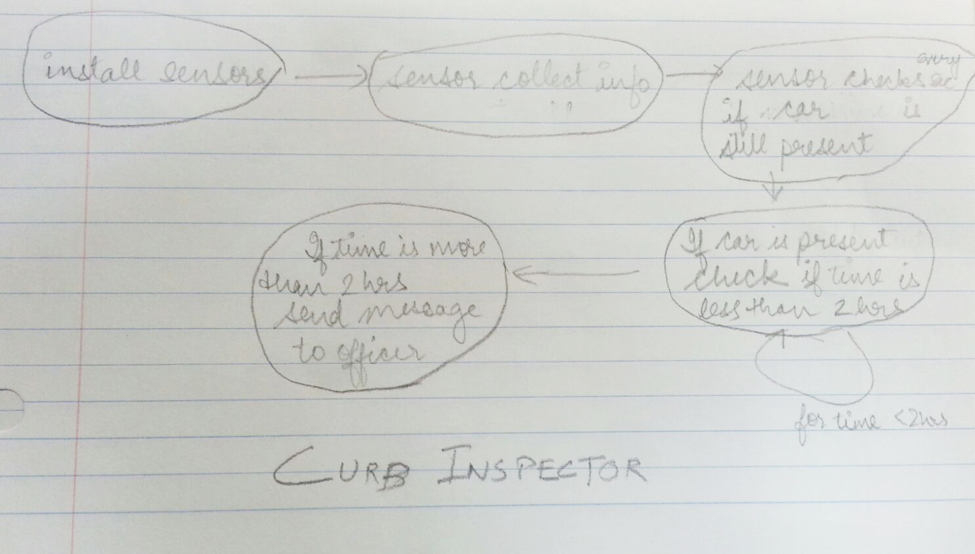 install sensors
sensor collect info
every
sensor checks sec
if car is
still present
If car is present
check if time is
less than 2 hrs
for time <2hrs
If time is more
than 2 hrs
send message
to officer
CURB INSPECTOR